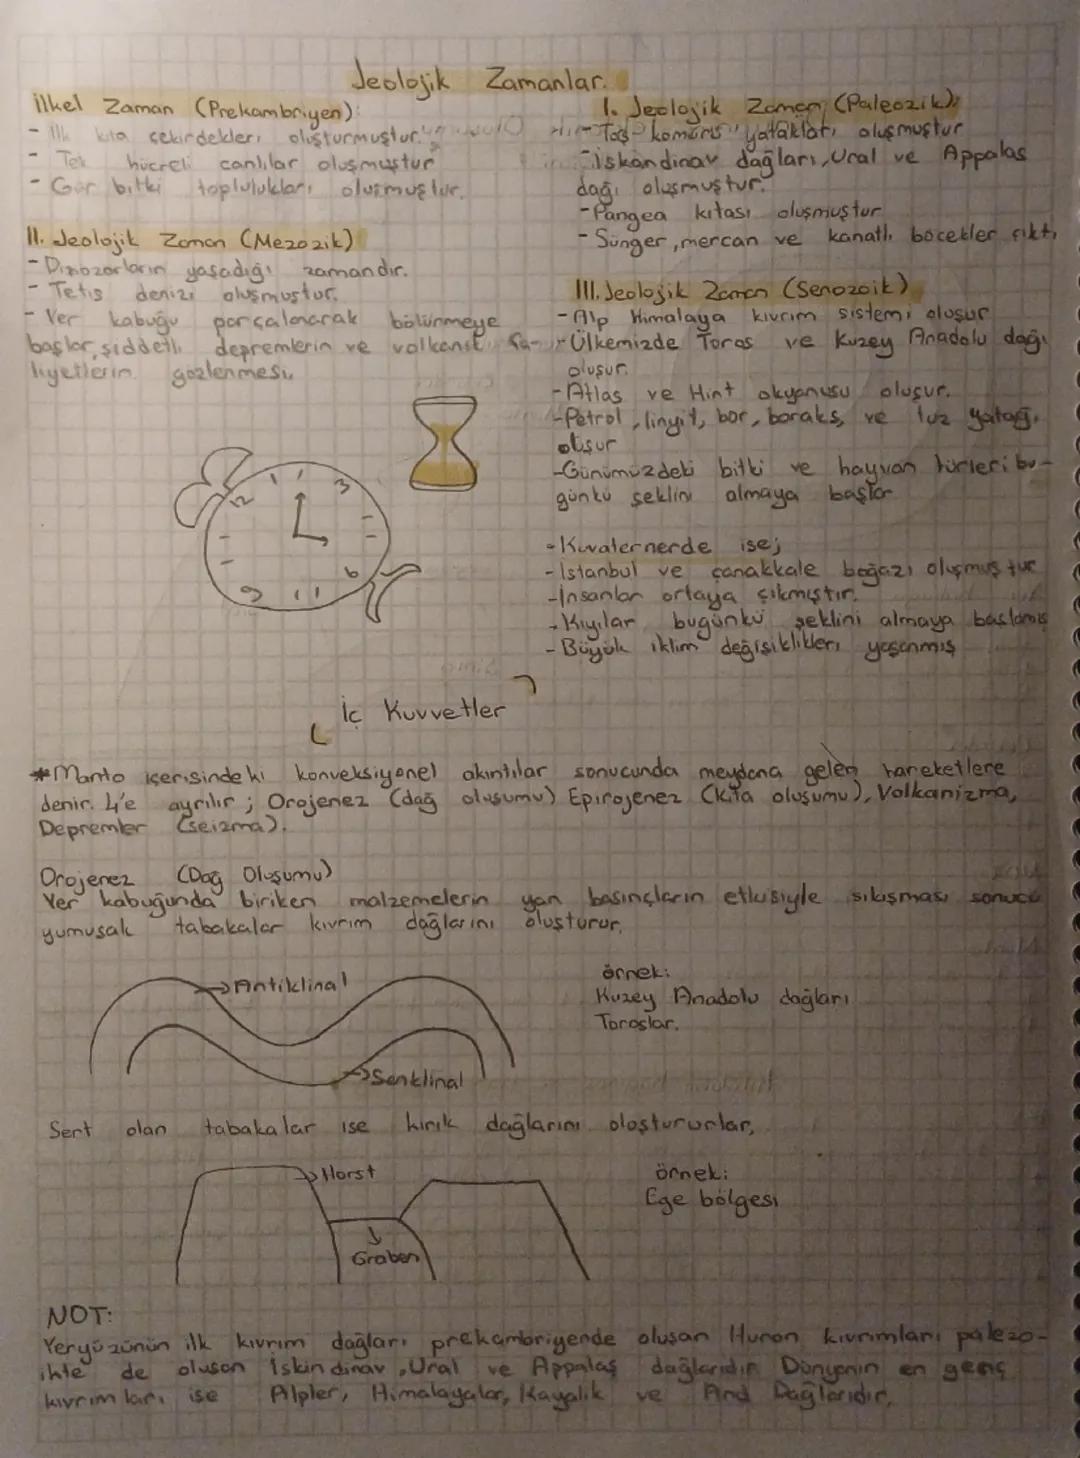 Jeolojik Zamanlar.
İlkel Zaman (Prekambriyen):
- İlk kıta çekirdekleri oluşturmuştur.
- Tek hücreli canlılar oluşmuştur
- Gür bitki toplulukları oluşmuştur.
II. Jeolojik Zaman (Mezozik)
- Dinozorların yaşadığı zamandır.
- Tetis denizi oluşmuştur.
- Yer kabuğu parçalanarak bölünmeye
başlar, şiddetli depremlerin ve volkanik fa-
liyetlerin gözlenmesi.
I. Jeolojik Zaman (Paleozik);
- Taş kömürü yatakları oluşmuştur
- İskandinav dağları, Ural ve Appalaş
dağı oluşmuştur.
- Pangea kıtası oluşmuştur
- Sünger, mercan ve kanatlı böcekler çıktı
III. Jeolojik Zaman (Senozoik)
- Alp Himalaya kıvrım sistemi oluşur
- Ülkemizde Toros ve Kuzey Anadolu dağı
oluşur.
- Atlas ve Hint okyanusu oluşur.
- Petrol, linyit, bor, boraks, ve tuz yatağı
oluşur
- Günümüzdeki bitki ve hayvan türleri bu-
günkü şeklini almaya başlar
- Kuvaternerde ise;
- İstanbul ve çanakkale boğazı oluşmuştur
- İnsanlar ortaya çıkmıştır.
- Kıyılar bugünkü şeklini almaya başlamış
- Büyük iklim değişiklikleri yaşanmış
12 1 3
9 11 6
İç Kuvvetler
*Manto içerisindeki konveksiyonel akıntılar sonucunda meydana gelen hareketlere
denir. 4'e ayrılır; Orojenez (dağ oluşumu) Epirojenez (Kıta oluşumu), Volkanizma,
Depremler (seizma).
Orojenez (Dağ Oluşumu)
Yer kabuğunda biriken malzemelerin yan basınçların etkisiyle sıkışması sonucu
yumuşak tabakalar kıvrım dağlarını oluşturur.
→Antiklinal
→Senklinal
örnek:
Kuzey Anadolu dağları
Toroslar.
Sert olan tabakalar ise kırık dağlarını oluştururlar,
→Horst
Graben
örnek:
Ege bölgesi
NOT:
Yeryüzünün ilk kıvrım dağları prekambriyende oluşan Huron kıvrımları palezo-
ikte de oluşan İskindinav, Ural ve Appalaş dağlarıdır. Dünyanın en genç
kıvrımları ise Alpler, Himalayalar, Kayalık ve And Dağlarıdır.